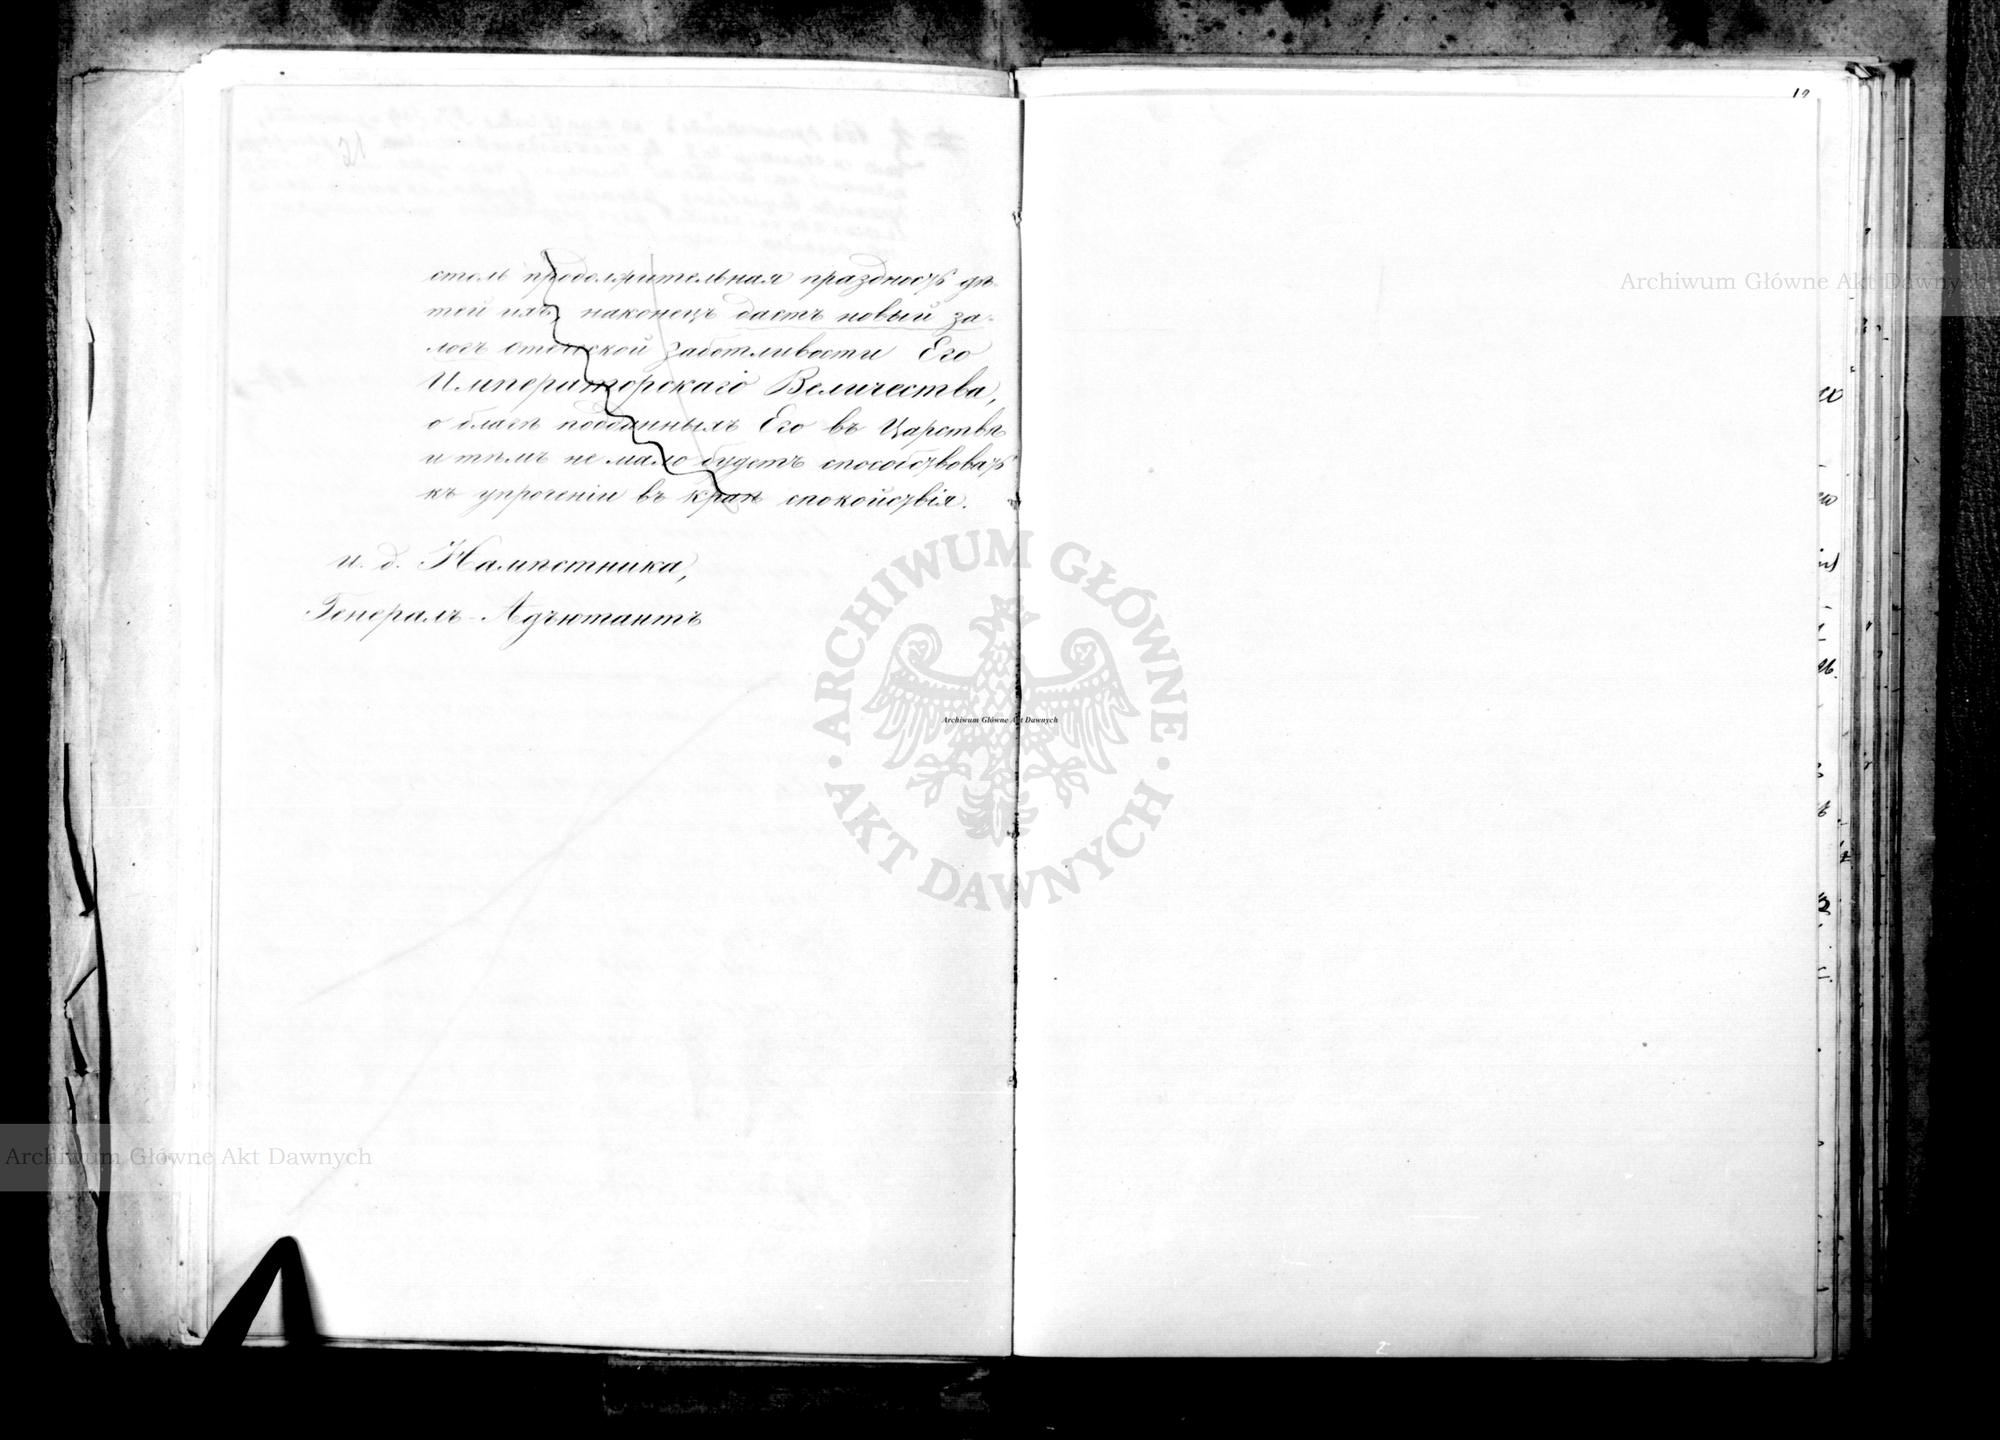 21
столь продолжительная праздность дѣ-
тей ихъ, наконецъ дастъ новый за-
логъ отеческой заботливости Его
Императорскаго Величества,
о благѣ подданныхъ Его въ Царствѣ
и тѣмъ не мало будетъ способствовать
къ упроченію въ краѣ спокойствія.
и. д. Намѣстника,
Генералъ-Адъютантъ
Archiwum Główne Akt Dawnych
ARCHIWUM GŁÓWNE AKT DAWNYCH
Archiwum Główne Akt Dawnych
Archiwum Główne Akt Dawnych